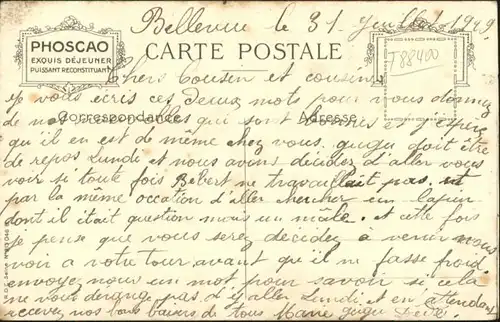 Bellevue le 31 Juillet 1949
PHOSCAO
EXQUIS DÉJEUNER
PUISSANT RECONSTITUANT
CARTE POSTALE
T88400
Correspondance
Adresse
Chers Cousin et cousine
je vous écris ces deux mots pour vous donnez
de nos nouvelles qui sont bonnes et j'espère
qu'il en est de même chez vous. guigu doit être
de repos Lundi et nous avons décidez d'aller vous
voir si toute fois Bébert ne travaillait pas, et
par la même occation d'aller chercher un lapin
dont il était question mais un mâle. et cette fois
je pense que vous serez décidez à venir nous
voir a votre tour avant qu'il ne fasse froid.
envoyez nous un mot pour savoir si cela
ne vous dérange pas d'y aller Lundi, et en attendant
recevez nos bons baisers de tous Mane guigu Dédé.